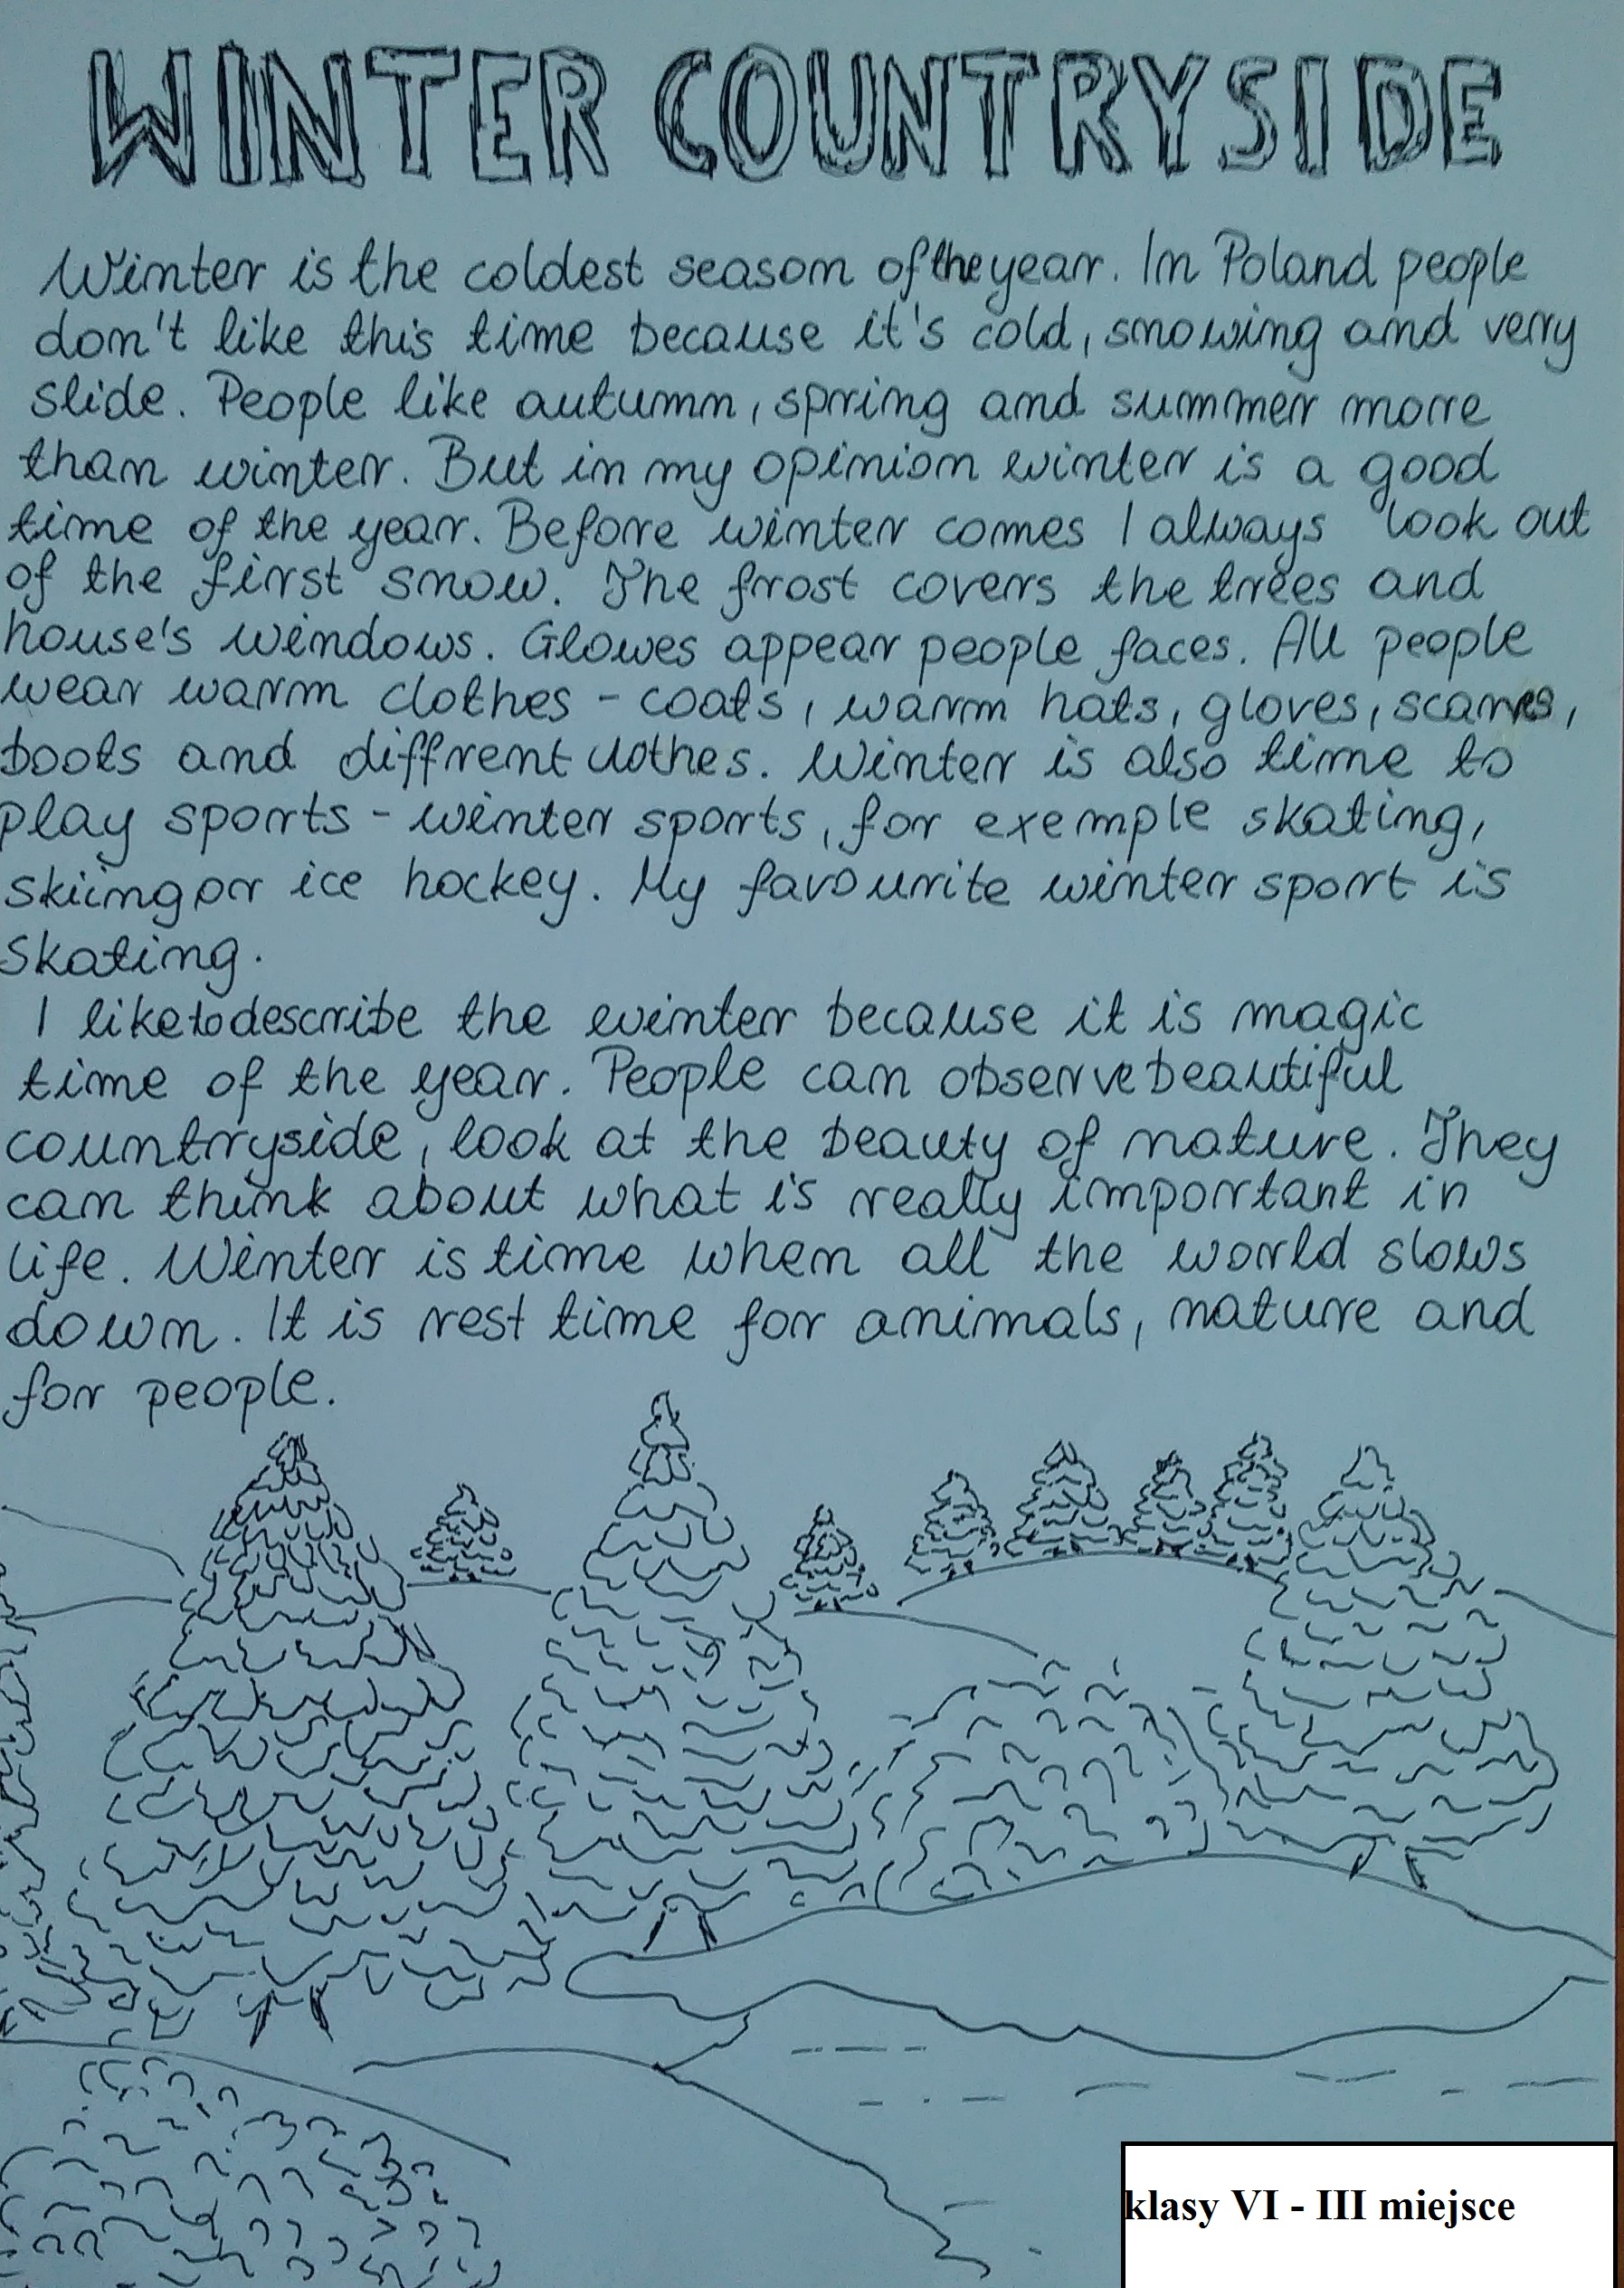 WINTER COUNTRYSIDE
Winter is the coldest season of the year. In Poland people
don't like this time because it's cold, snowing and very
slide. People like autumn, spring and summer more
than winter. But in my opinion winter is a good
time of the year. Before winter comes I always look out
of the first snow. The frost covers the trees and
house's windows. Glowes appear people faces. All people
wear warm clothes - coats, warm hats, gloves, scarves,
boots and diffrent clothes. Winter is also time to
play sports - winter sports, for exemple skating,
skiing or ice hockey. My favourite winter sport is
skating.
I like to describe the winter because it is magic
time of the year. People can observe beautiful
countryside, look at the beauty of nature. They
can think about what is really important in
life. Winter is time when all the world slows
down. It is rest time for animals, nature and
for people.
klasy VI - III miejsce